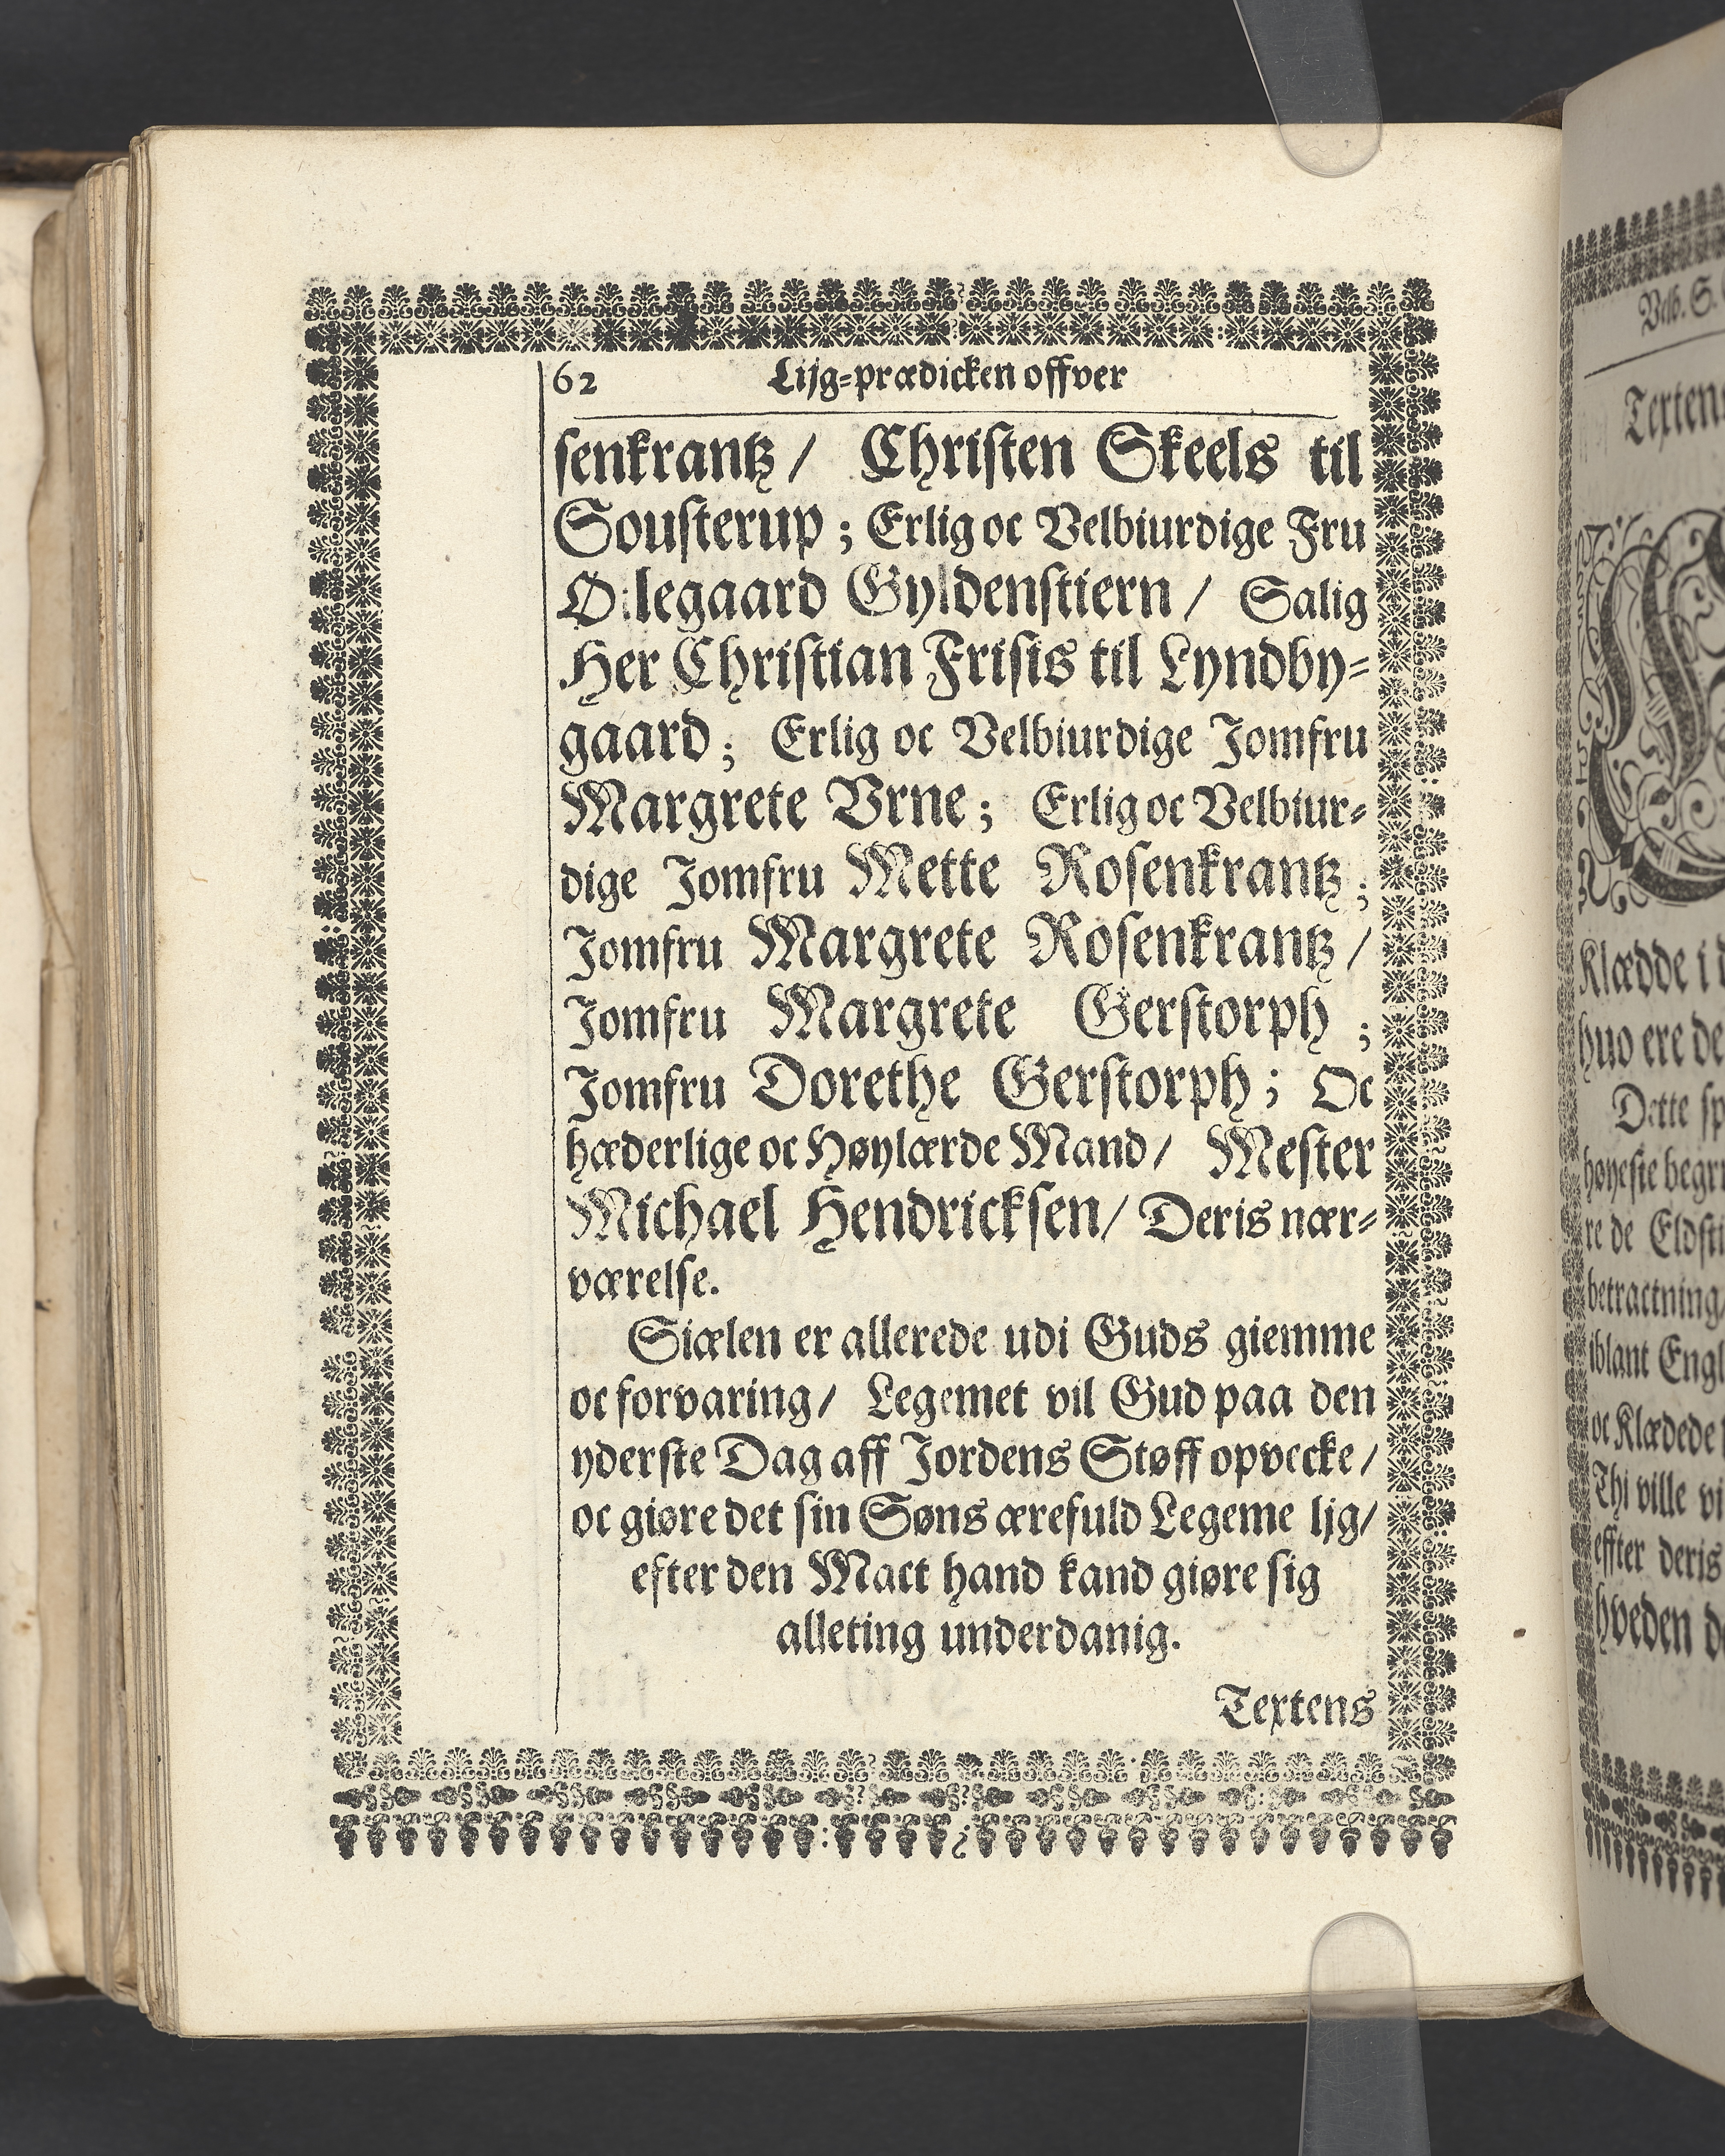 62 Lijg-prædicken offver
senkrantz / Christen Skeels til
Sousterup ; Erlig oc Velbiurdige Fru
Gyldenstiern / Salig
Her Christian Frisis til Lyndby-
gaard ; Erlig oc Velbiurdige Jomfru
Margrete Vrne ; Erlig oc Velbiur-
dige Jomfru Mette Rosenkrantz ;
Jomfru Margrete Rosenkrantz /
Jomfru Margrete Gerstorph ;
Jomfru Dorethe Gerstorph ; Oc
hæderlige oc Høylærde Mand / Mester
Michael Hendricksen / Deris nær-
værelse.
Siælen er allerede udi Guds giemme
oc forvaring / Legemet vil Gud paa den
yderste Dag aff Jordens Støff opvecke /
oc giøre det sin Søns ærefuld Legeme ljg /
efter den Mact hand kand giøre sig
alleting underdanig.
Textens
Velb. S.
Klædde i
huo ere de
Dette
høyeste
re de
betractning
iblant
oc Klædede
Thi ville
effter deris
hveden